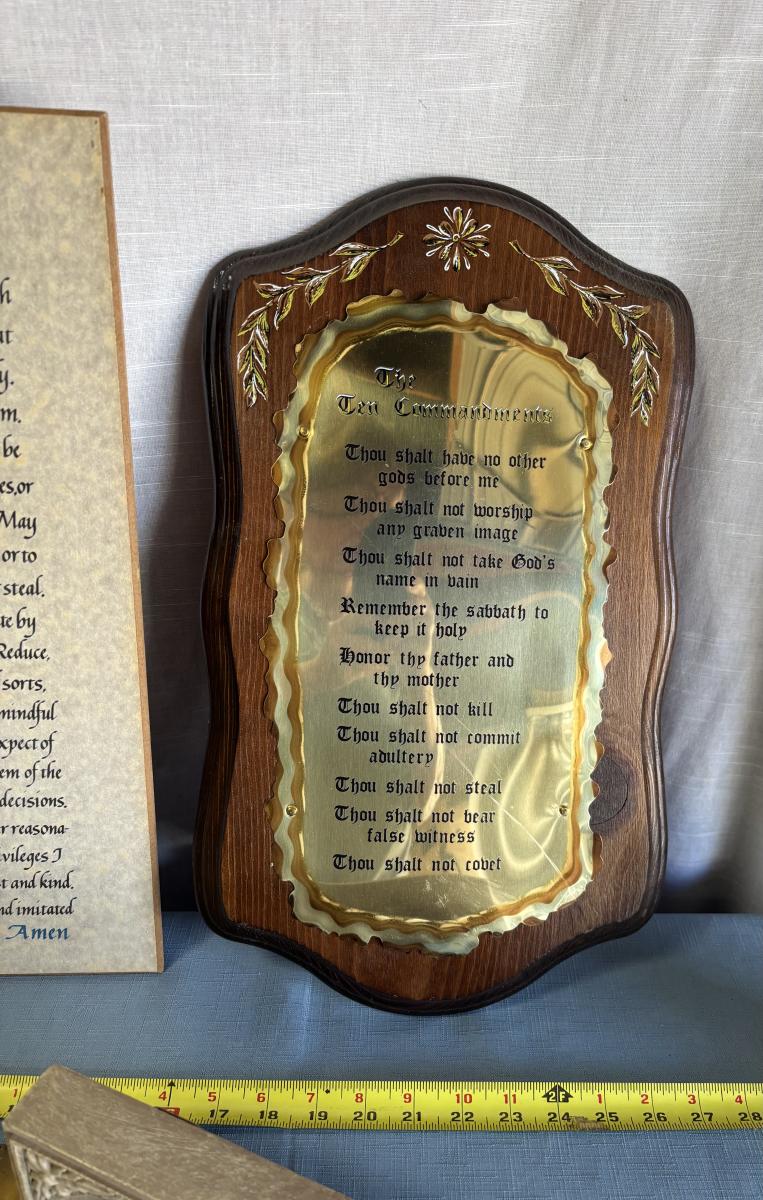 h
at
y.
m.
be
es, or
May
or to
steal.
te by
Reduce,
sorts,
mindful
xpect of
em of the
decisions.
r reasona-
vileges I
t and kind.
nd imitated
Amen
The
Ten Commandments
Thou shalt have no other
gods before me
Thou shalt not worship
any graven image
Thou shalt not take God's
name in vain
Remember the sabbath to
keep it holy
Honor thy father and
thy mother
Thou shalt not kill
Thou shalt not commit
adultery
Thou shalt not steal
Thou shalt not bear
false witness
Thou shalt not covet
1 4 5 6 7 8 9 10 11 2F 1 2 3 4
17 18 19 20 21 22 23 24 25 26 27 28